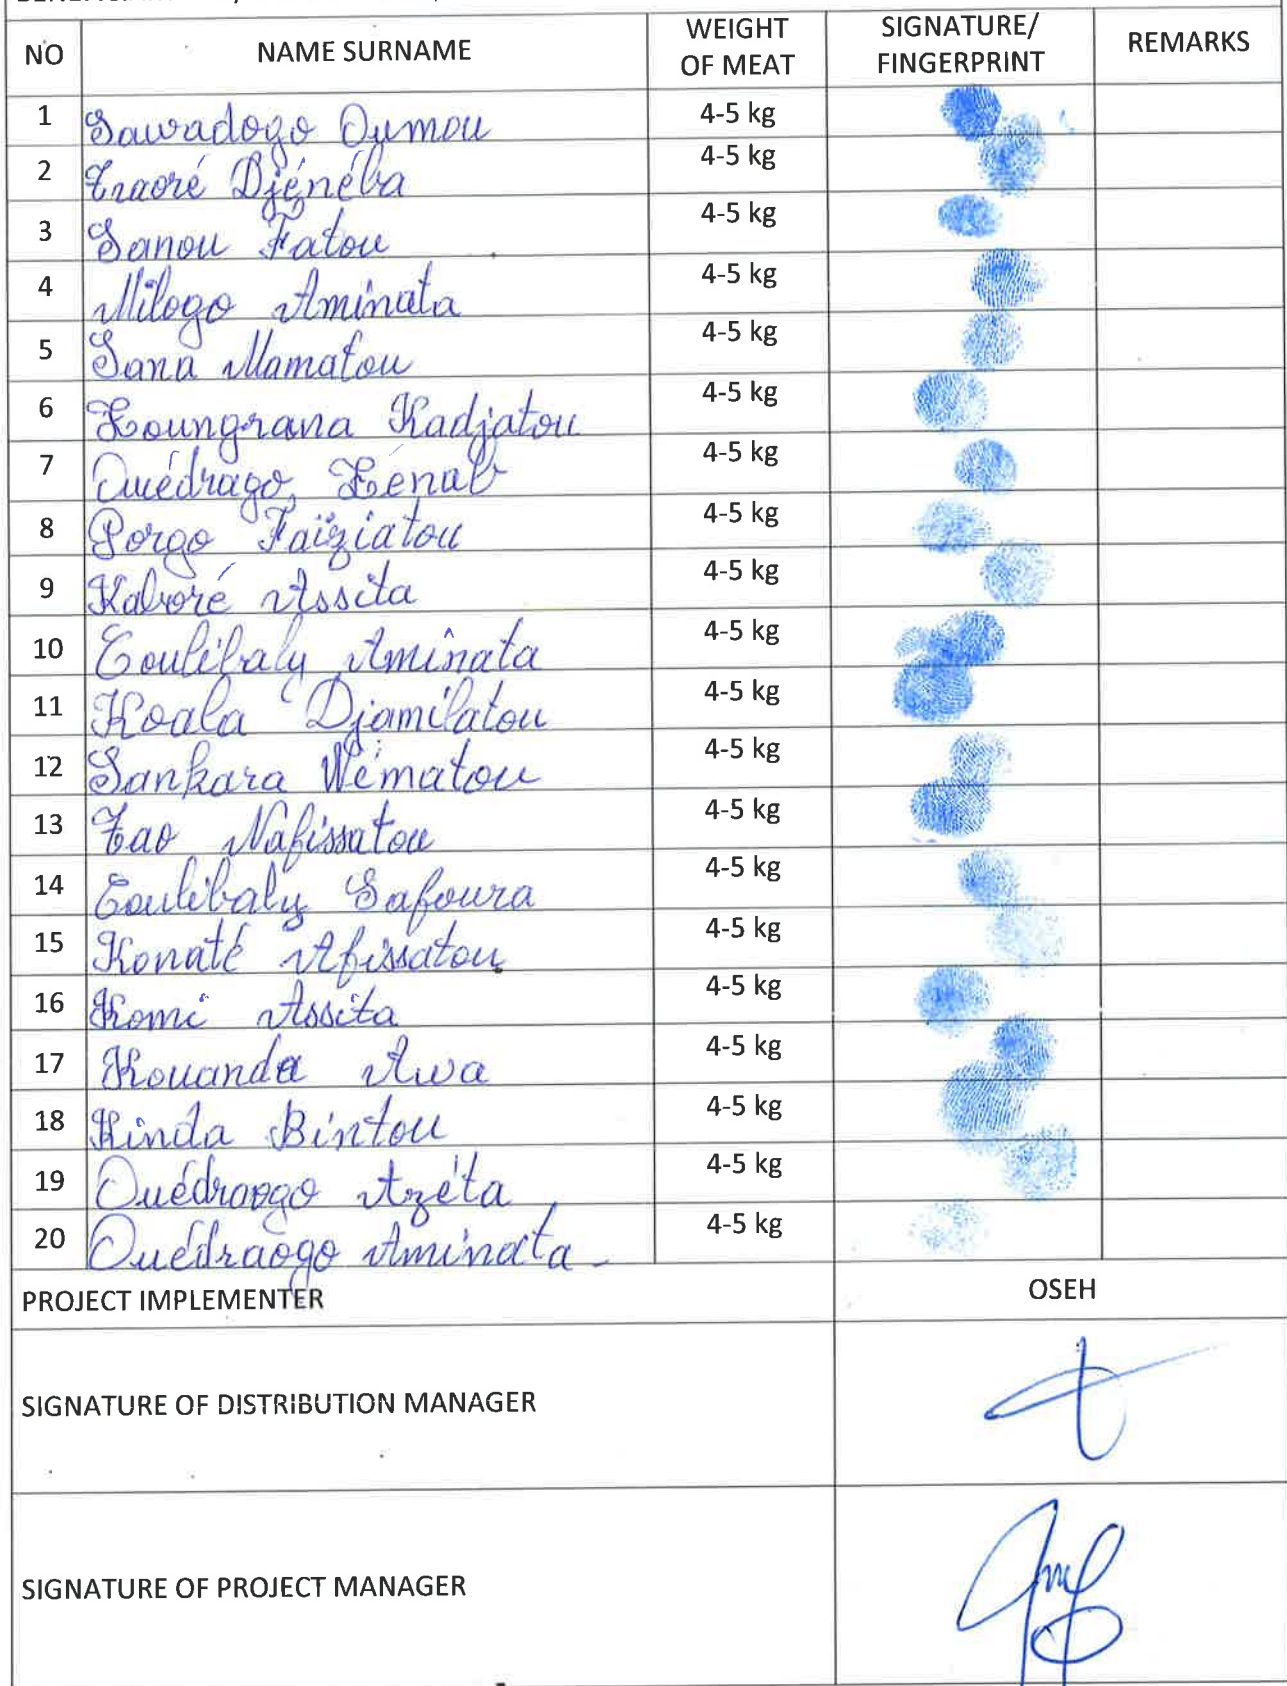 NO NAME SURNAME WEIGHT OF MEAT SIGNATURE/ FINGERPRINT REMARKS
1 Sawadogo Oumou 4-5 kg
2 Traoré Djénéba 4-5 kg
3 Sanou Fatou 4-5 kg
4 Milogo Aminata 4-5 kg
5 Sana Mamatou 4-5 kg
6 Zoungrana Kadjatou 4-5 kg
7 Ouédrago Zénab 4-5 kg
8 Porgo Faïziatou 4-5 kg
9 Kaboré Assita 4-5 kg
10 Coulibaly Aminata 4-5 kg
11 Koala Djamilatou 4-5 kg
12 Sankara Wématou 4-5 kg
13 Tao Nafissatou 4-5 kg
14 Coulibaly Safoura 4-5 kg
15 Konaté Afissatou 4-5 kg
16 Komi Assita 4-5 kg
17 Kouanda Awa 4-5 kg
18 Kinda Bintou 4-5 kg
19 Ouédroogo Azéta 4-5 kg
20 Ouédraogo Aminata 4-5 kg
PROJECT IMPLEMENTER OSEH
SIGNATURE OF DISTRIBUTION MANAGER
SIGNATURE OF PROJECT MANAGER